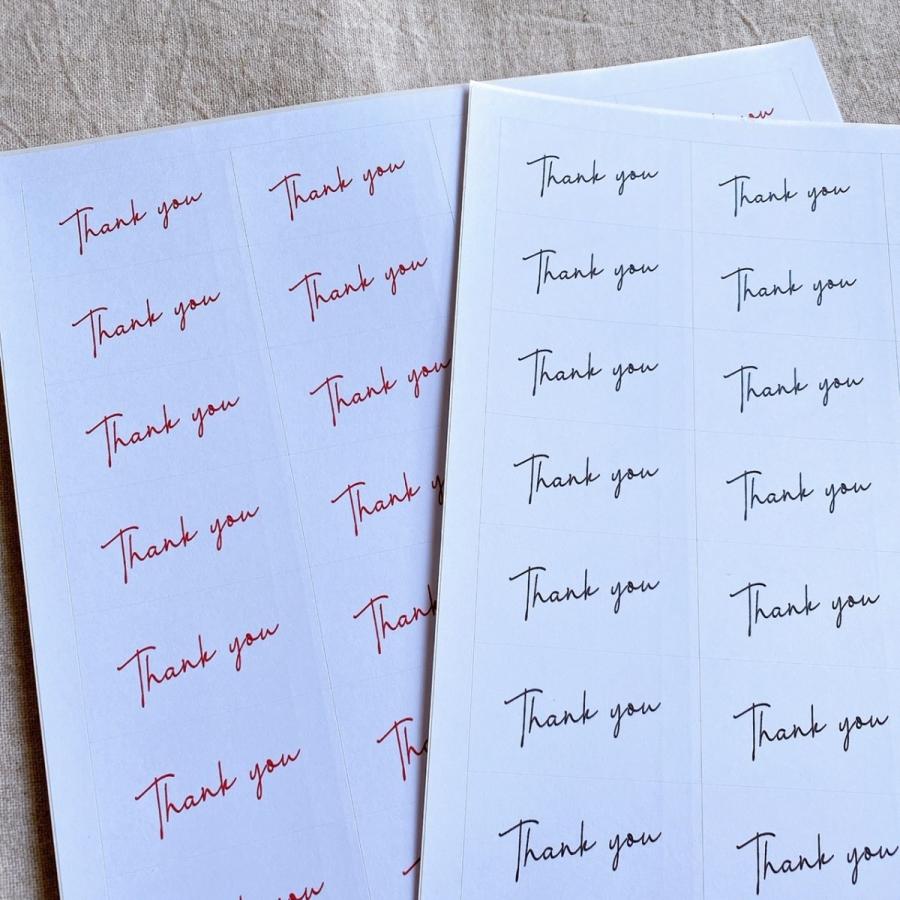 Thank you
Thank you
you
Thank you
Thank you
Thank you
Thank you
Thank you
Thank
Thank you
Thank
Thank you
you
Thank you
Thank you
Thank you
Thank you
Thank you
Thank you
Thank you
Thank you
Thank you
Thank you
Thank you
Thank you
Thank you
Thank you